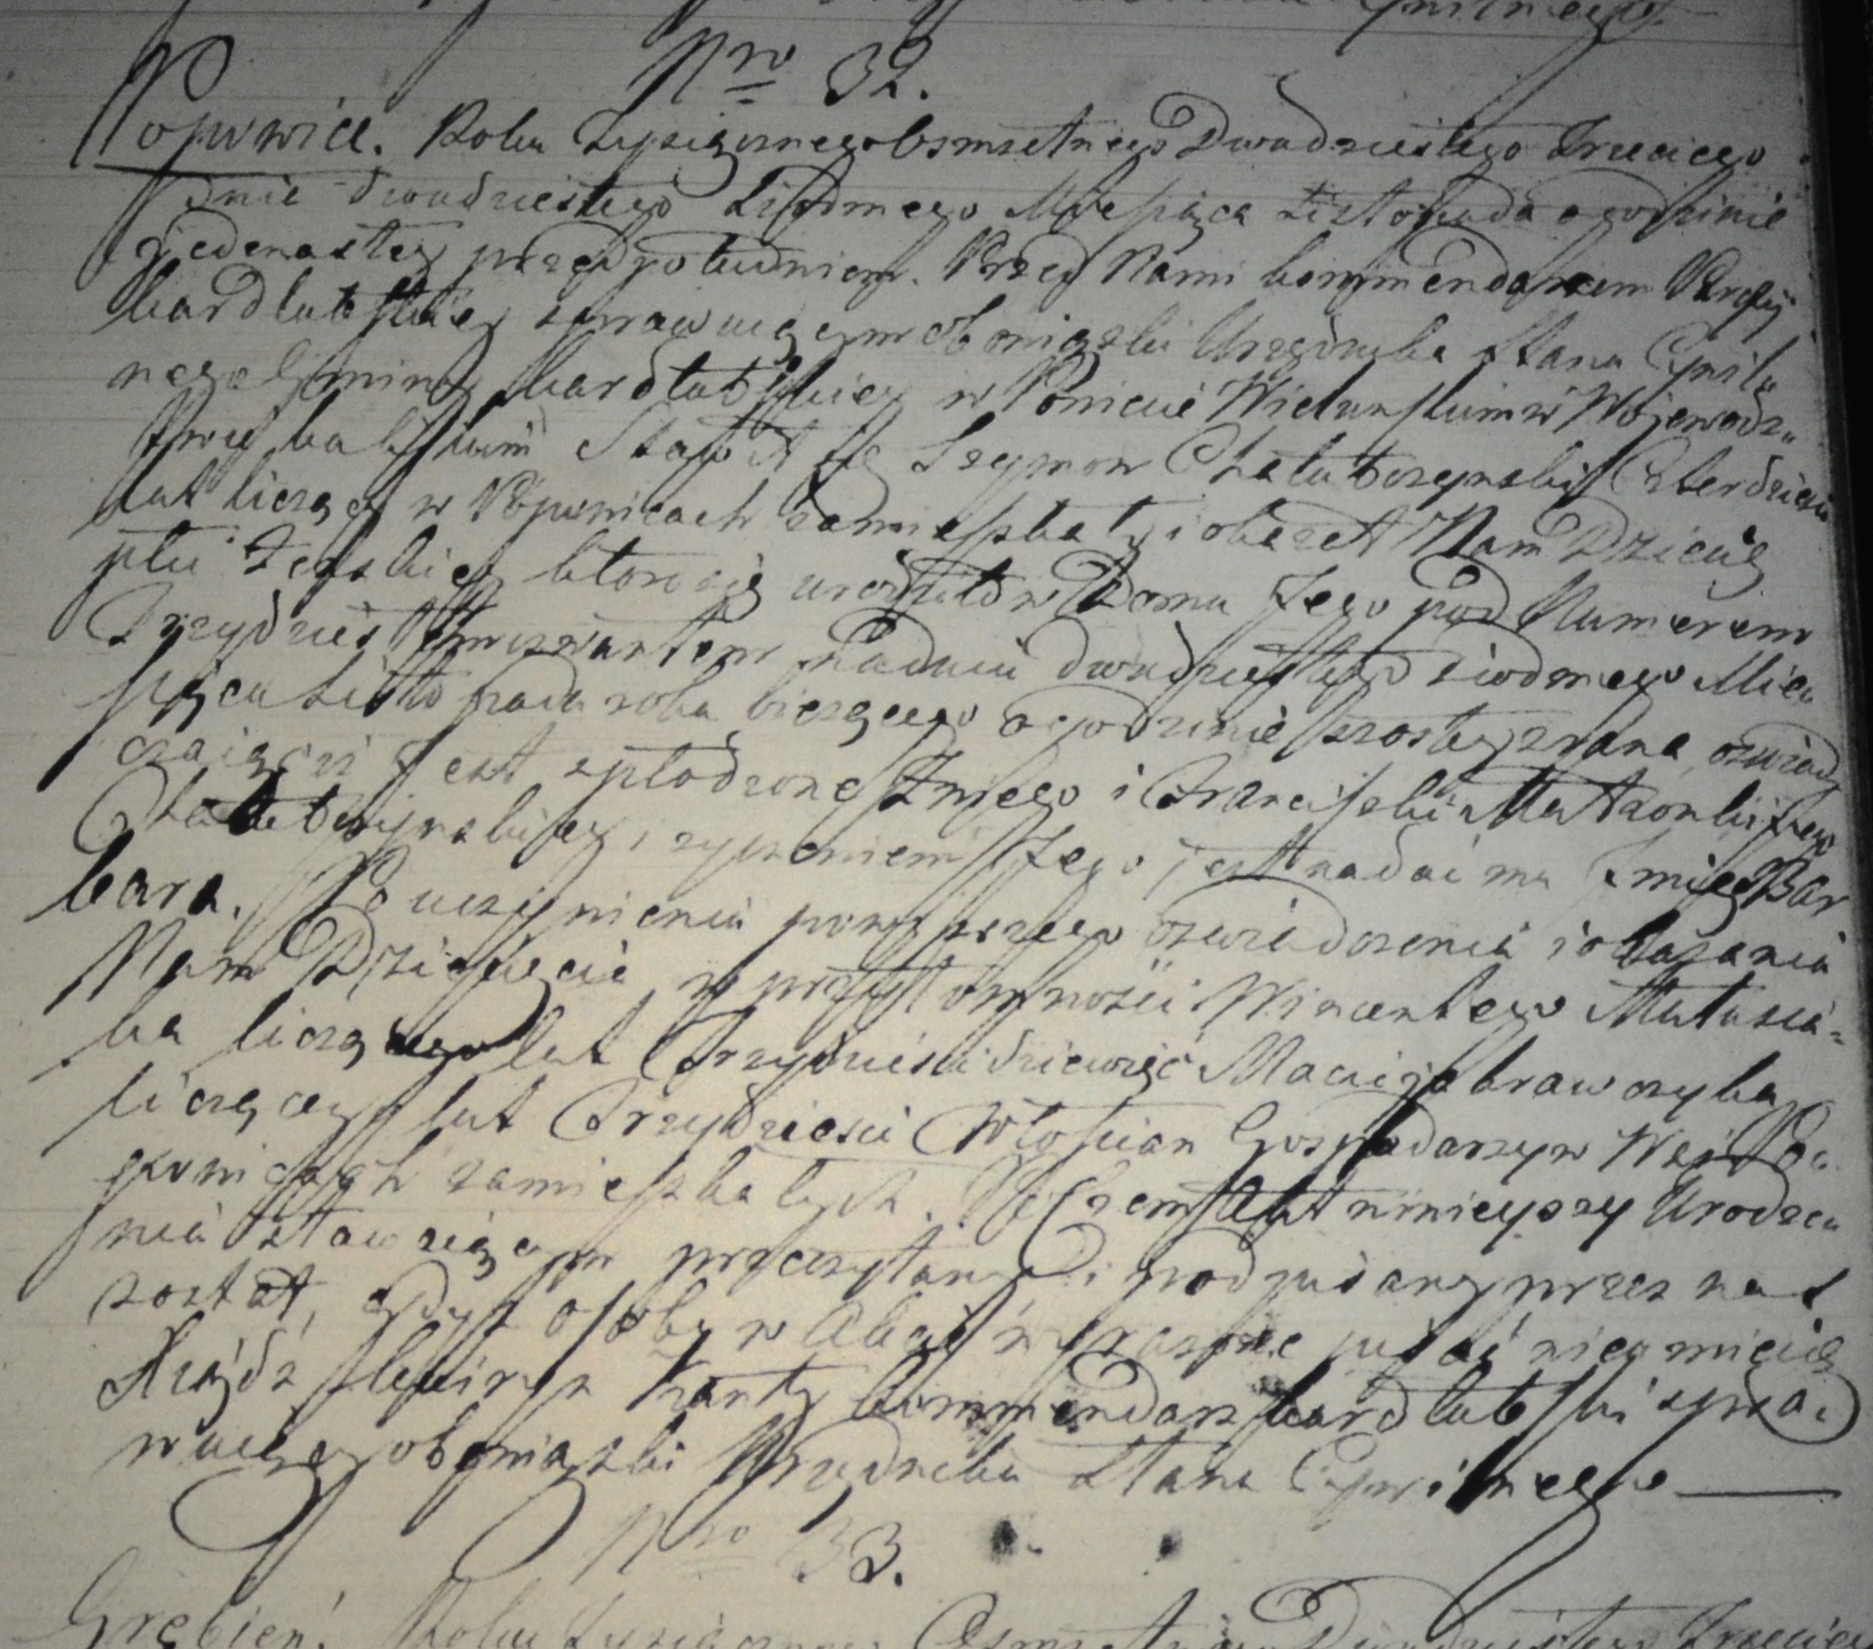 Nro 32.
Popowice. Roku Tysiącznego Osmsetnego Dwudziestego Trzeciego
dnia dwudziestego Siodmego Miesiąca Listopada o godzinie
jedenastey przed południem. Przed Nami Kommendarzem Parafij
Kardlubskiey sprawuiącym obowiązki Urzędnika Stanu Cywil
nego Gminy Kardlubskiey w Powiecie Wieluńskim w Wojewodz
stwie Kaliskim Stawił się Szymon Chałubczynski Czterdzieści
lat liczący w Popowicach zamieszkały i okazał Nam Dziecię
płci Żeńskiey które się urodziło w Domu Jego pod Numerem
Trzydziestym czwartem na dniu dwudziestego siodmego Mie
siąca Listopada roku bieżącego o godzinie szostey z rana, oswiad
czaiąc iż jest spłodzone z niego i Franciszki Małżonki jego
Chałubczynskiey, i życzeniem Jego jest nadać mu Imię Bar
bara. Po uczynieniu powyższego oswiadczenia i okazania
Nam Dziecięcia w przytomności Wincentego Matusia-
ka liczącego lat Trzydzieści dziewięć Macieja Krawczyka
liczącego lat Trzydzieści Włościan Gospodarzy w Wsi Po
powicach zamieszkałych. Po czem Akt ninieyszy Urodze
nia stawaiącym przeczytany i podpisany przez nas
został, gdyż osoby w Akcie wyrażone pisać nieumieią
Xiądz Kommendarz Kardlubski spra
wuiący obowiązki Urzędnika Stanu Cywilnego
Nro 33.
Grębień. Roku Tysiącznego Osmsetnego Dwudziestego Trzeciego